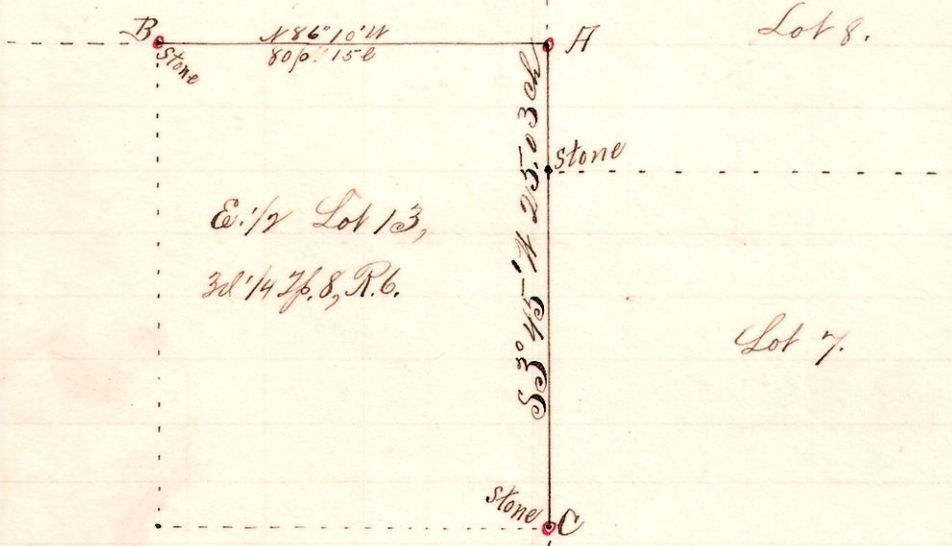 B
Stone
N86°10'W
80p. 15l
A
Lot 8.
S3°45'W 25.03 ch
stone
E. 1/2 Lot 13,
3d 1/4 Tp. 8, R. 6.
Lot 7.
stone
C